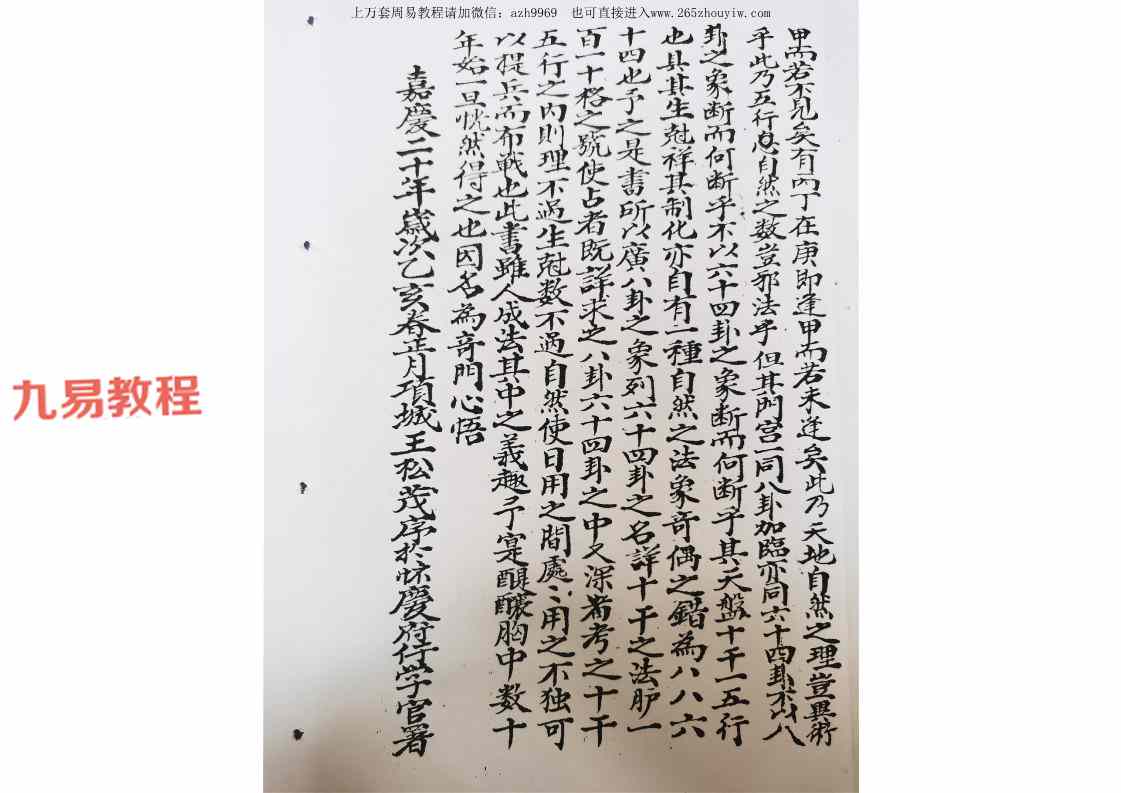 上万套周易教程请加微信：azh9969　也可直接进入www.265zhouyiw.com
九易教程
甲而若不見矣有丙丁在庚即逢甲而若未逢矣此乃天地自然之理豈異術
乎此乃五行自然之数豈邪法乎但其門宫一同八卦加臨亦同六十四卦不以八
卦之象断而何断乎不以六十四卦之象断而何断乎其天盤十干一五行
也具其生尅祥其制化亦自有一種自然之法象奇偶之錯為八八六
十四也予之是書所以廣八卦之象列六十四卦之名詳十干之法一
百一十格之號使占者既詳求之八卦六十四卦之中又深考之十干
五行之内則理不過生尅数不過自然使日用之間處〻用之不独可
以提兵而布戰也此書雖人成法其中之義趣予寔醖釀胸中数十
年始一旦恍然得之也因名為奇門心悟
嘉慶二十年歲次乙亥春正月項城王松茂序於怀慶府行学官署